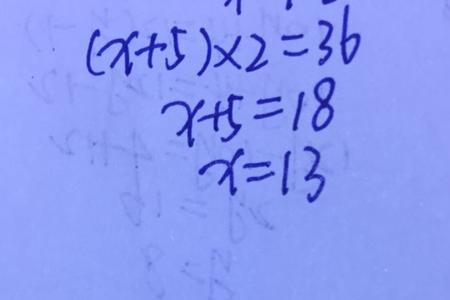 (x+5)×2=36
x+5=18
x=13